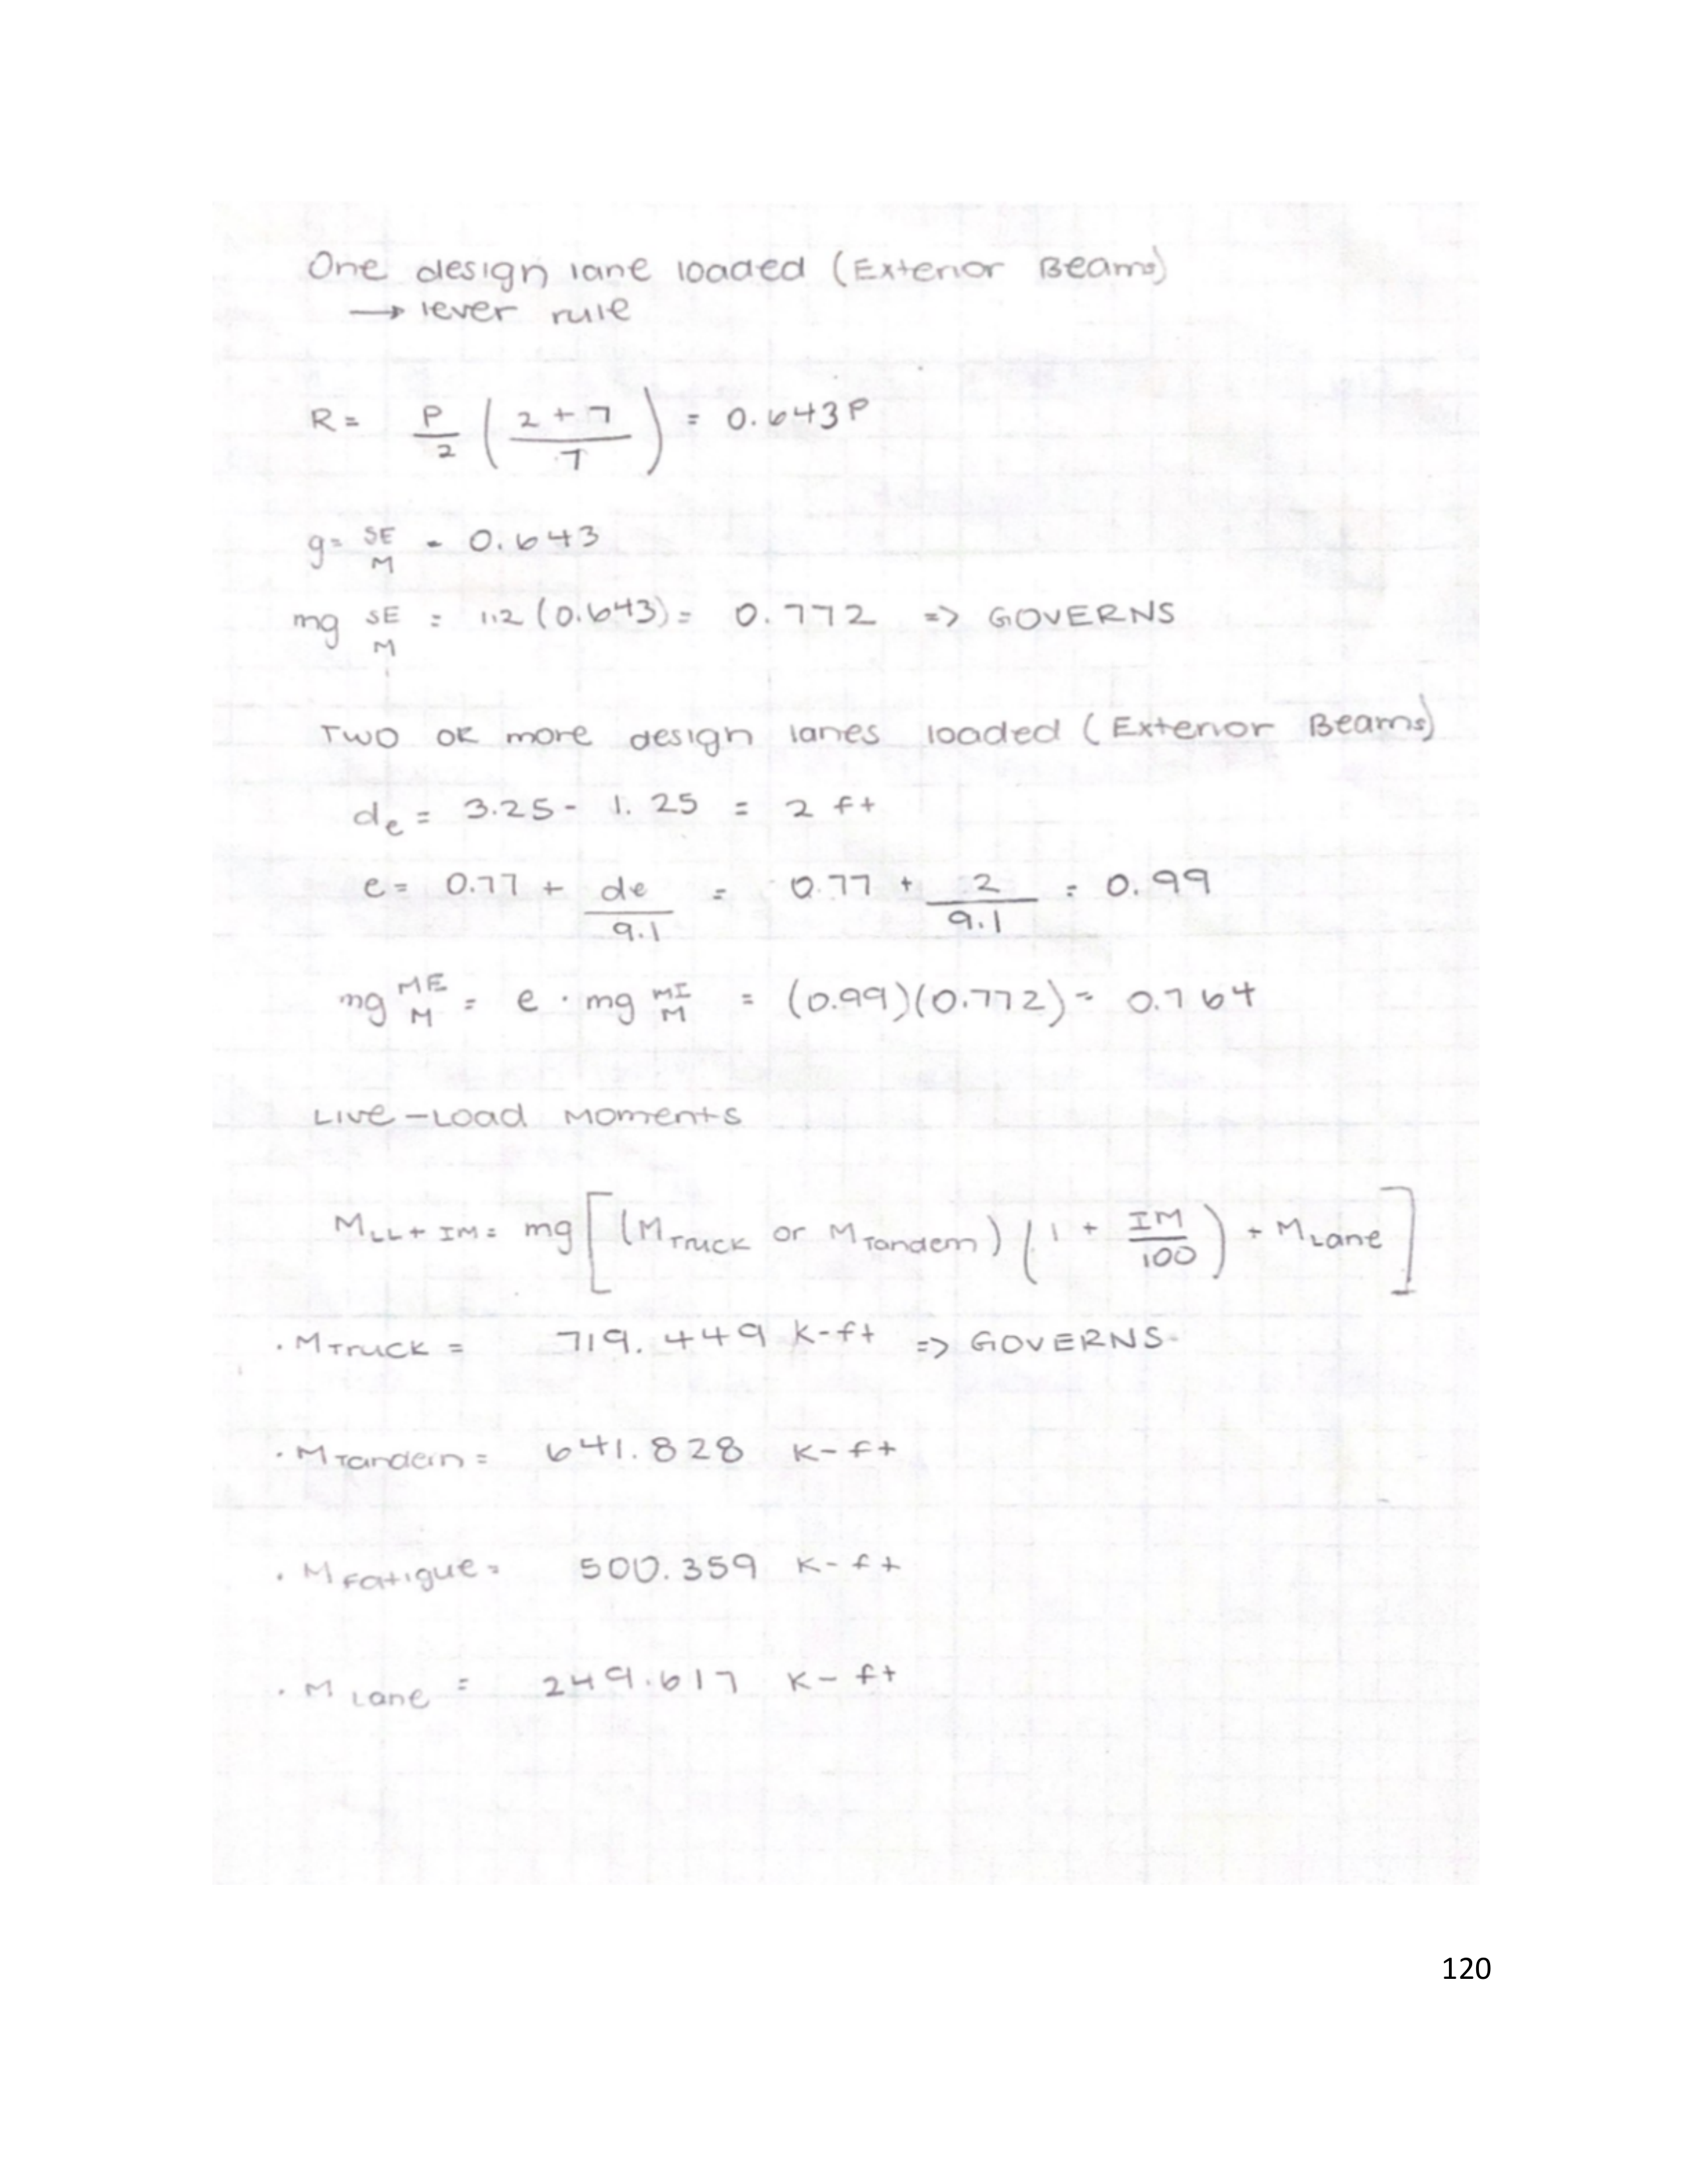 One design lane loaded (Exterior Beams)
→ lever rule
R = P/2 ( (2 + 7)/7 ) = 0.643P
g = SE M = 0.643
mg SE M = 1.2 (0.643) = 0.772 => GOVERNS
Two or more design lanes loaded (Exterior Beams)
de = 3.25 - 1.25 = 2 ft
e = 0.77 + de/9.1 = 0.77 + 2/9.1 = 0.99
mg ME M = e · mg MI M = (0.99)(0.772) = 0.764
Live-Load Moments
MLL+IM = mg [ (MTruck or MTandem) ( 1 + IM/100 ) + MLane ]
· MTruck = 719.449 k-ft => GOVERNS
· MTandem = 641.828 k-ft
· MFatigue = 500.359 k-ft
· MLane = 249.617 k-ft
120